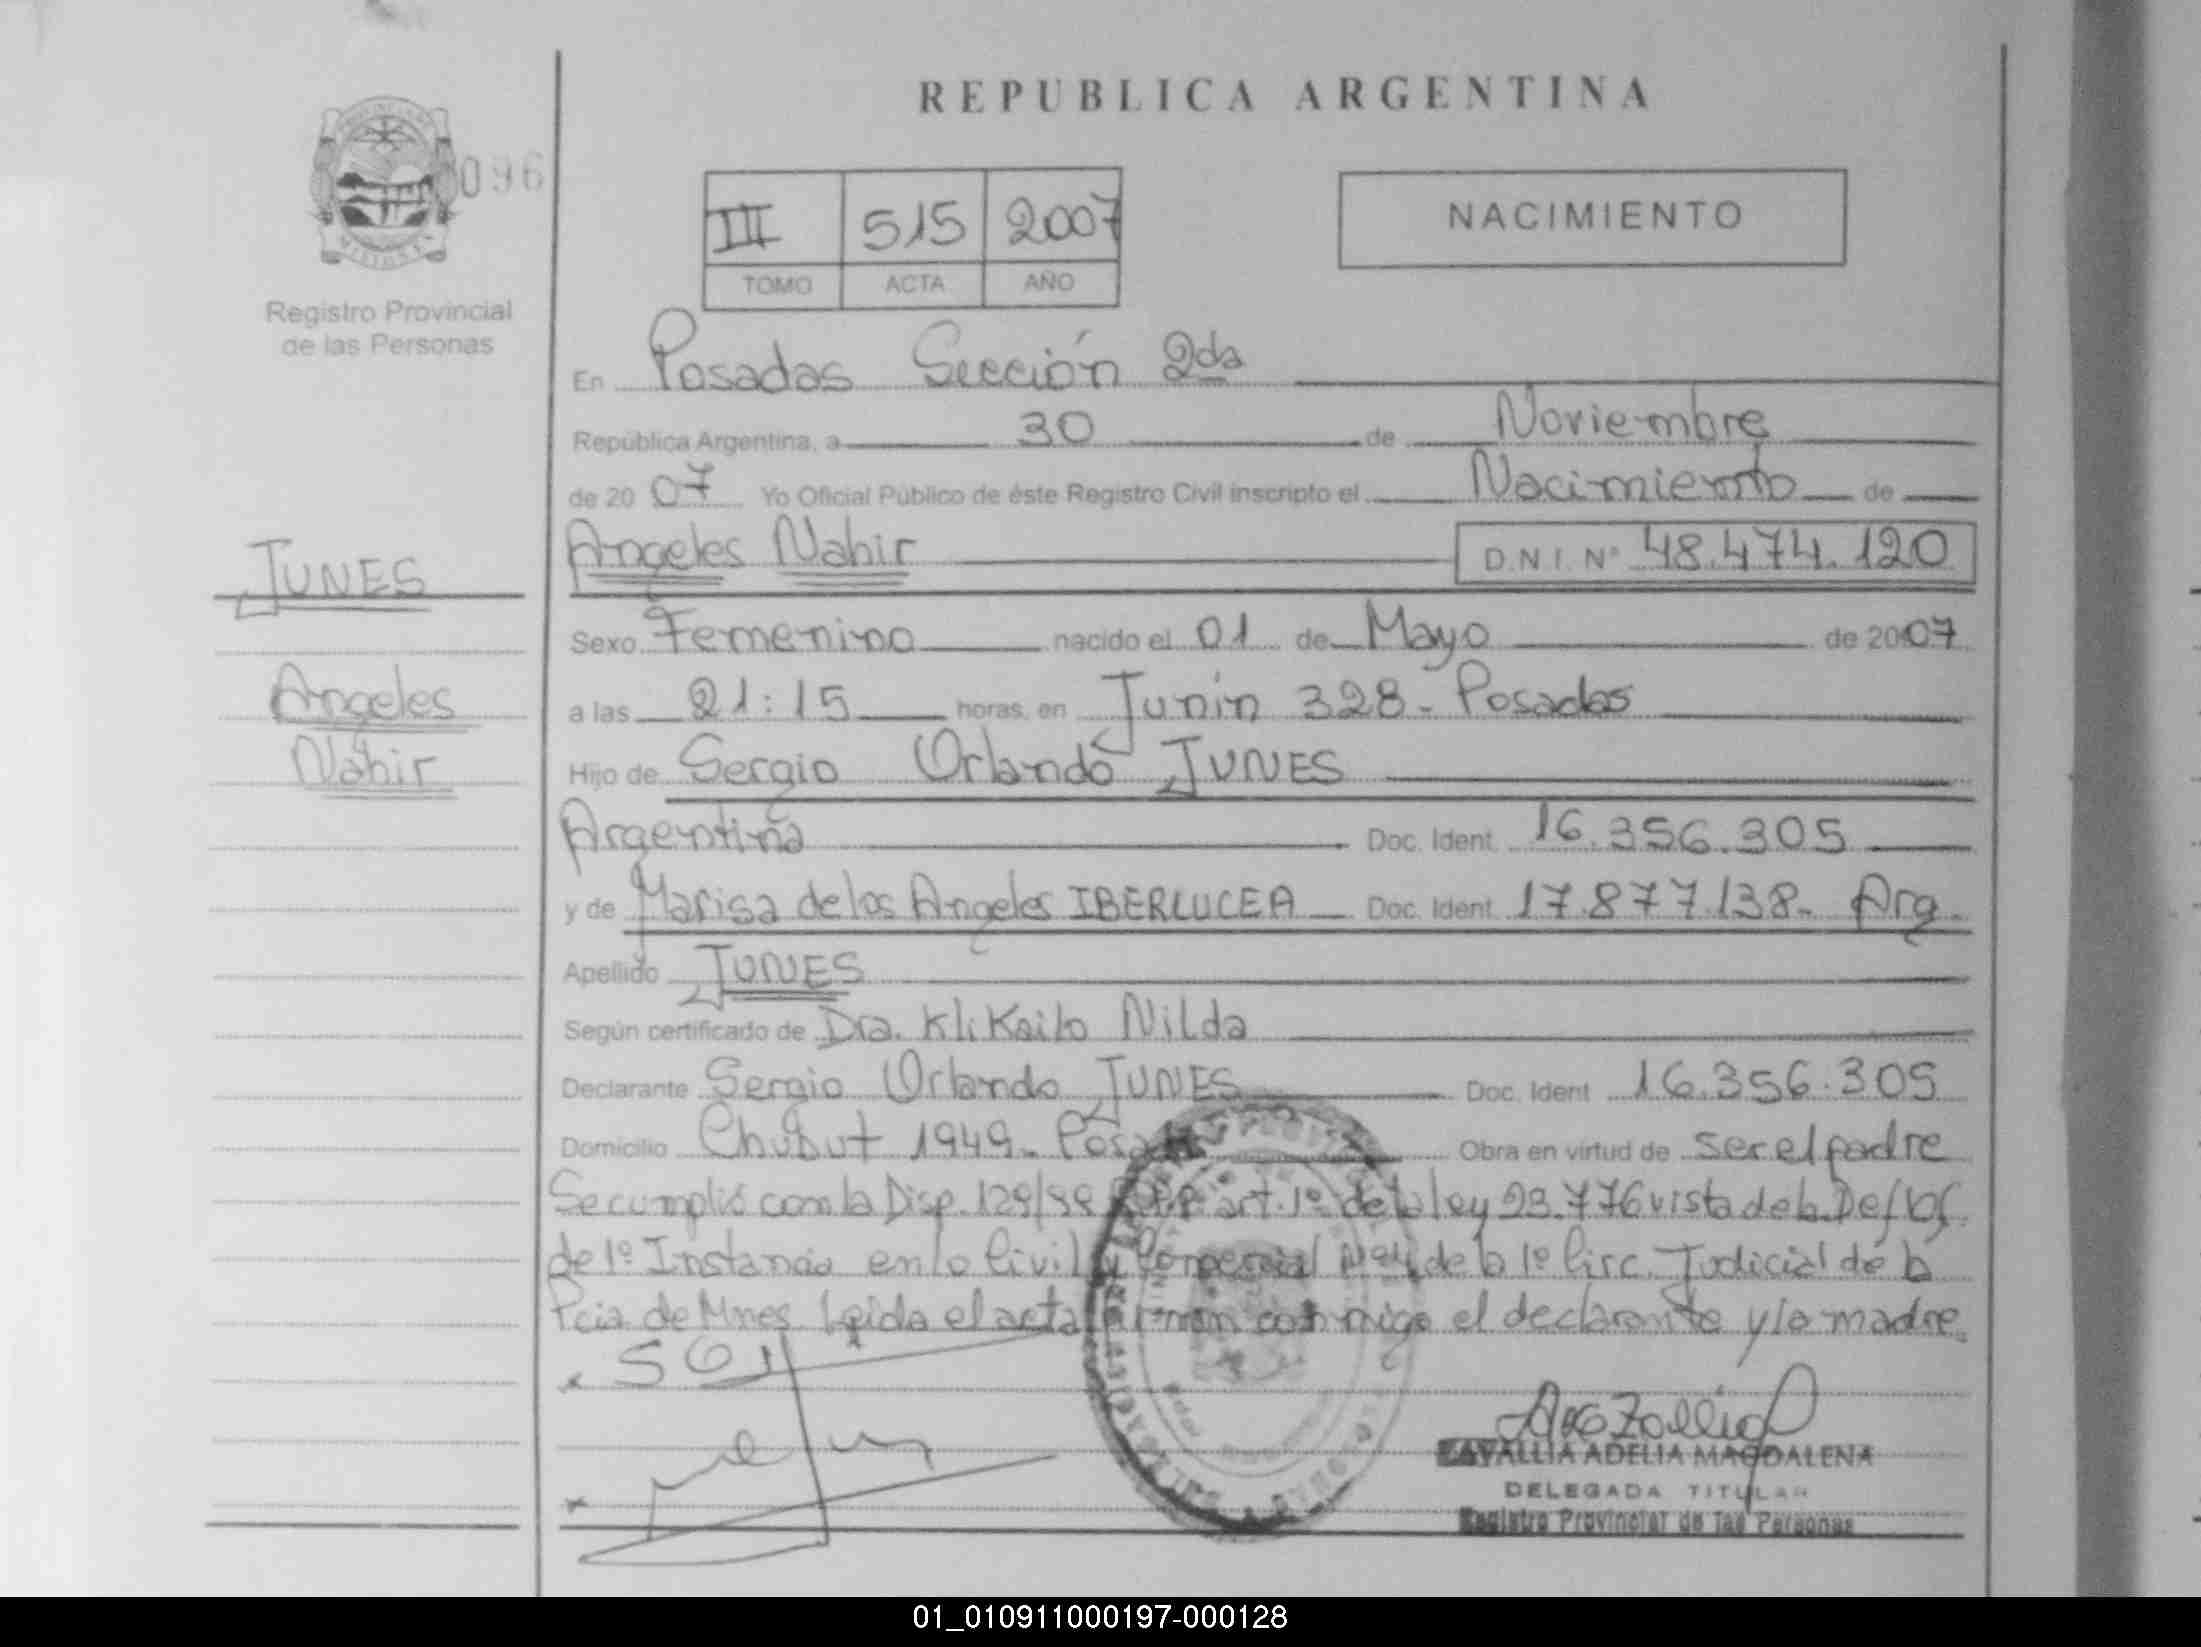 REPUBLICA ARGENTINA
096
III 515 2007
TOMO ACTA AÑO
NACIMIENTO
MISIONES
Registro Provincial
de las Personas
JUNES
Angeles
Nahir
En Posadas Sección 2da
República Argentina, a 30 de Noviembre
de 20 07 Yo Oficial Público de éste Registro Civil inscripto el Nacimiento de
Angeles Nahir D.N.I. Nº 48.474.120
Sexo Femenino nacido el 01 de Mayo de 2007
a las 21:15 horas, en Junín 328- Posadas
Hijo de Sergio Orlando JUNES
Argentina Doc. Ident. 16.356.305
y de Marisa de los Angeles IBERLUCEA Doc. Ident. 17.877.138- Arg.
Apellido JUNES
Según certificado de Dra. Klikailo Nilda
Declarante Sergio Orlando JUNES Doc. Ident. 16.356.305
Domicilio Chubut 1949- Posadas Obra en virtud de ser el padre
Se cumplió con la Disp. art. 1º de la ley 23.776 vista de la Def. Of.
de 1º Instancia en lo Civil y Comercial Nº 4 de la 1º Circ. Judicial de la
Pcia. de Mnes. Leída el acta firman conmigo el declarante y la madre.
ZAVALLIA ADELIA MAGDALENA
DELEGADA TITULAR
Registro Provincial de las Personas
01_010911000197-000128